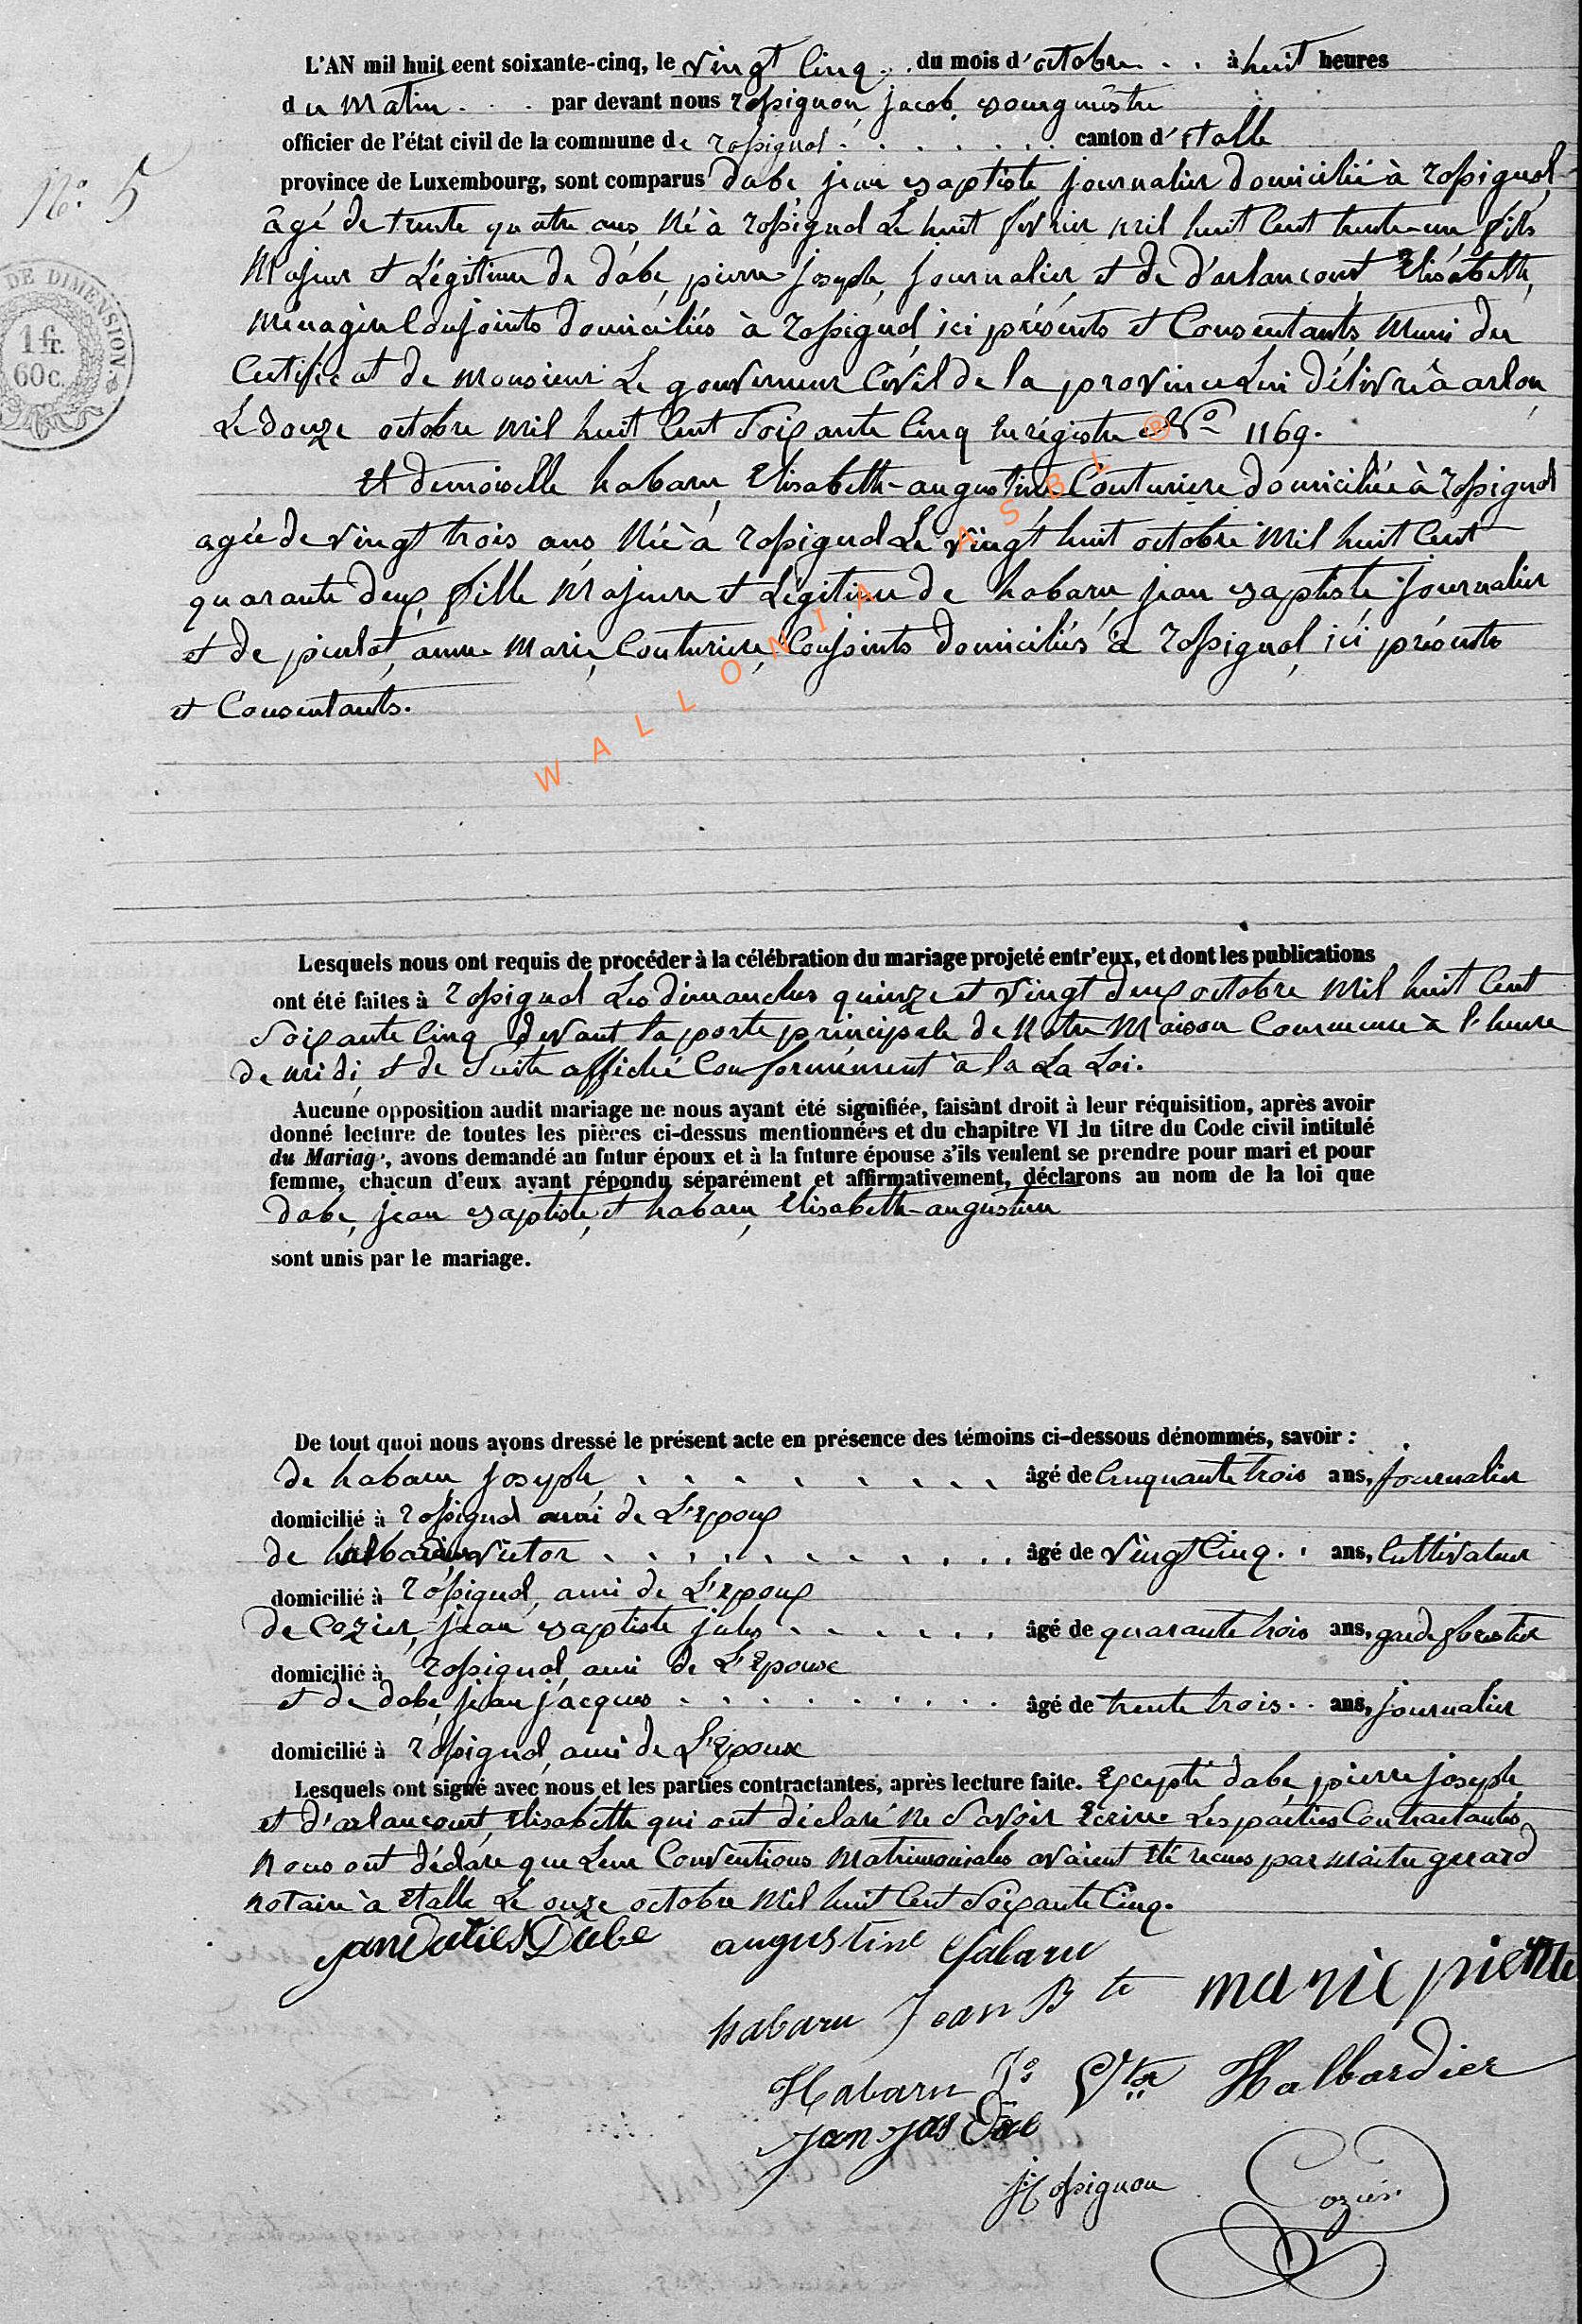 L'AN mil huit cent soixante-cinq, le vingt Cinq . . du mois d'octobre . . à huit heures
du Matin . . . par devant nous rossignon, jacob, bourgmêstre
officier de l'état civil de la commune de rossignol . . . . . . . canton d'Etalle
N° 5
province de Luxembourg, sont comparus dabe jean baptiste journalier domicilié à rossignol,
âgé de trente quatre ans, Né à rossignol Le huit février mil huit Cent trente-un fils
Majeur et Légitime de dabe, pierre joseph, journalier, et de d'arlancourt, Elisabeth,
Ménagère Conjoints domiciliés à rossignol, ici présents et Consentants, Muni du
DE DIMENSION.
1 fr.
60 c.
Certificat de Monsieur Le gouverneur Civil de la province Lui délivré à arlon
Le douze octobre Mil huit Cent Soixante Cinq Enrégistré N° 1169.
Et demoiselle habaru, Elisabeth-augustine Couturière domiciliée à rossignol
agée de vingt trois ans, Née à rossignol Le vingt huit octobre Mil huit Cent
quarante deux, fille Majeure et Légitime de habaru, jean baptiste journalier
et de pierlot, anne Marie, Couturière, Conjoints domiciliés à rossignol, ici présents
et Consentants.
WALLONIA ASBL ®
Lesquels nous ont requis de procéder à la célébration du mariage projeté entr'eux, et dont les publications
ont été faites à rossignol Les dimanches quinze et vingt deux octobre Mil huit Cent
Soixante Cinq devant la porte principale de Notre Maison Commune à l'heure
de midi, et de Suite affiché Conformément à la La Loi.
Aucune opposition audit mariage ne nous ayant été signifiée, faisant droit à leur réquisition, après avoir
donné lecture de toutes les pièces ci-dessus mentionnées et du chapitre VI du titre du Code civil intitulé
du Mariag', avons demandé au futur époux et à la future épouse s'ils veulent se prendre pour mari et pour
femme, chacun d'eux ayant répondu séparément et affirmativement, déclarons au nom de la loi que
dabe, jean baptiste, et habaru, Elisabeth-augustine
sont unis par le mariage.
De tout quoi nous avons dressé le présent acte en présence des témoins ci-dessous dénommés, savoir :
de habaru, joseph, . . . . . . . . âgé de Cinquante trois ans, journalier
domicilié à rossignol ami de L'Epoux
de halbardier Victor . . . . . . . . . . âgé de vingt Cinq . . ans, Cultivateur
domicilié à rossignol, ami de L'Epoux
de Cozier, jean baptiste jules . . . . . . âgé de quarante trois ans, garde forestier
domicilié à rossignol, ami de L'Epouse
et de dabe, jean jacques . . . . . . . . . âgé de trente trois . . ans, journalier
domicilié à rossignol, ami de L'Epoux
Lesquels ont signé avec nous et les parties contractantes, après lecture faite. Excepté dabe, pierre joseph,
et d'arlancourt, Elisabeth qui ont déclaré Ne Savoir Ecrire Les parties Contractantes
Nous ont déclaré que Leur Conventions Matrimoniales avaient Eté recues par Maître gerard
Notaire à Etalle Le onze octobre Mil huit Cent Soixante Cinq.
Dabe augustine habaru
habaru Jean Bte marie pierlote
Habaru Js Vtor Halbardier
jan jas Dabe
J Rossignon Cozier